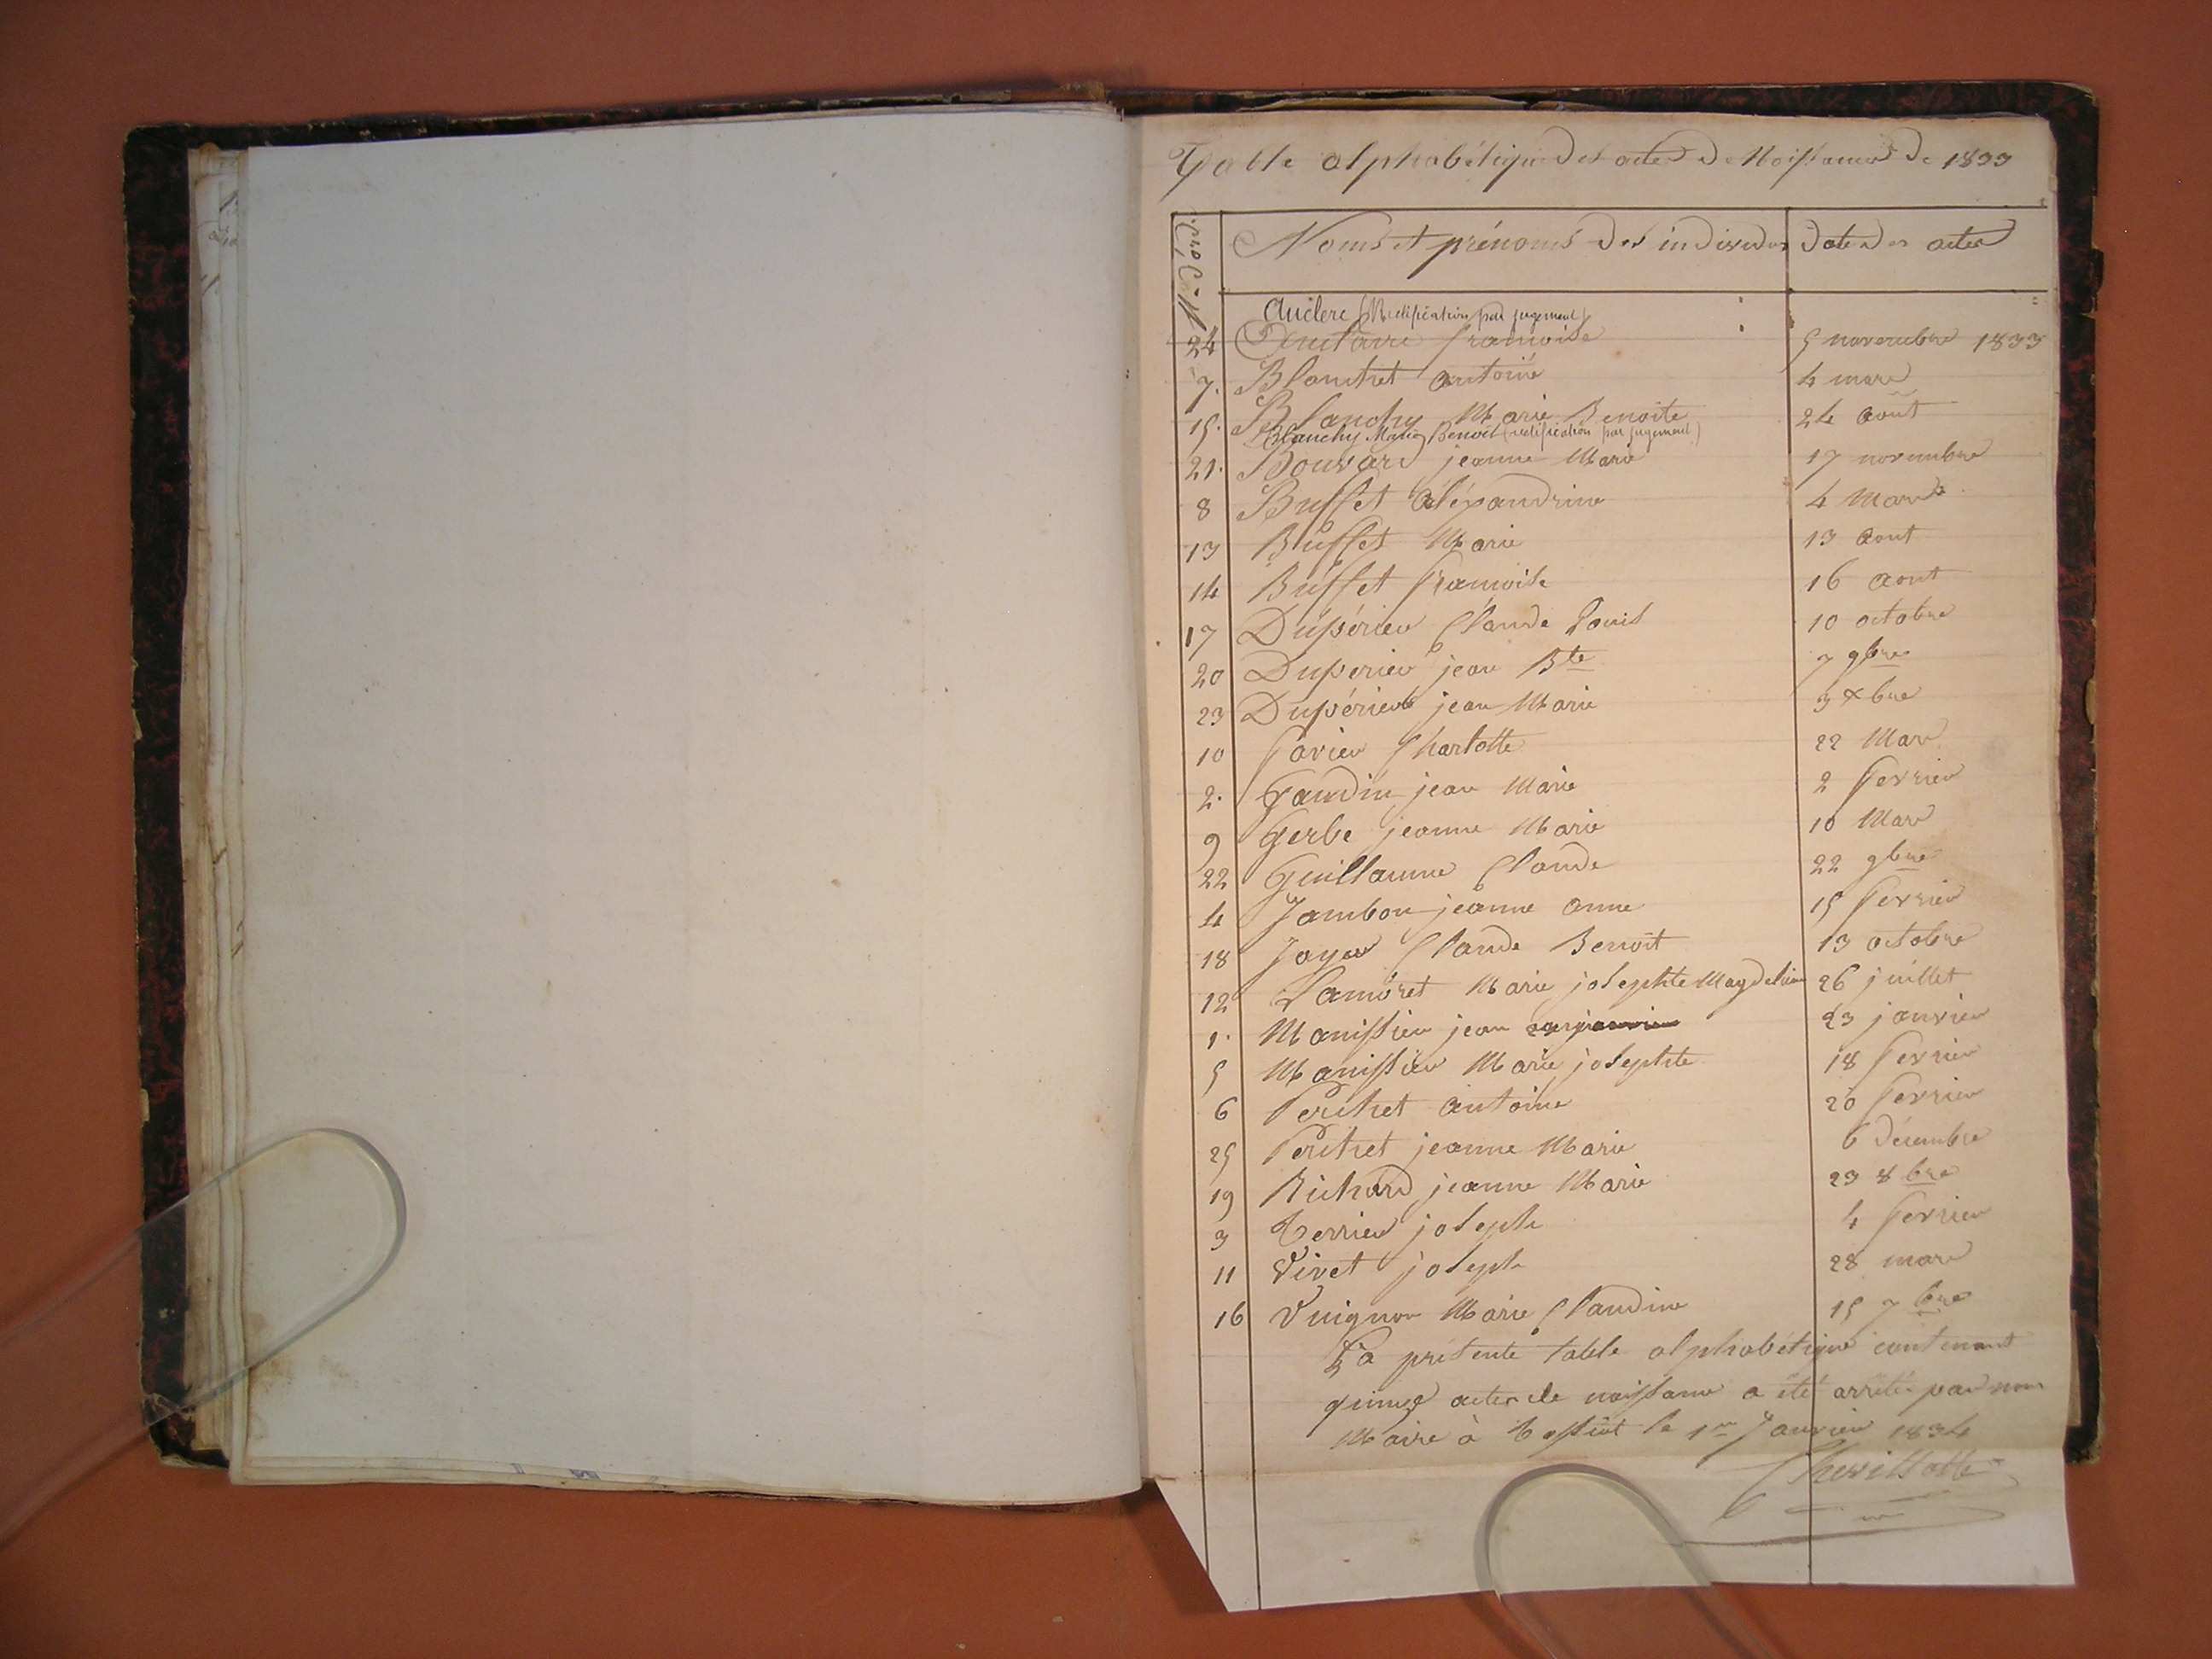 Table alphabétique des actes de Naissances de 1833
Noms et prénoms des individus Date des actes
Auclerc (Rectification par jugement)
24 françoise 5 novembre 1833
7. Blanchet antoine 4 mars
15. Blanchy Marie Benoite 24 août
Blanchy Marie Benoit (rectification par jugement)
21. Bouvard jeanne Marie 17 novembre
8 Buffet aléxandrine 4 Mars
13 Buffet Marie 13 aout
14 Buffet françoise 16 aout
17 Dupérier Claude Louis 10 octobre
20 Duperier jean Bte 7 9bre
23 Dupérier jean Marie 3 Xbre
10 favier Charlotte 22 Mars
2. Gaudin jean Marie 2 fevrier
9 Gerbe jeanne Marie 10 Mars
22 Guillaume Claude 22 9bre
4 Jambon jeanne anne 15 fevrier
18 Joyer Claude Benoit 13 octobre
12 Lamoret Marie josephte Magdeleine 26 juillet
1. Manissier jean 23 janvier
5 Manissier Marie josephte 18 fevrier
6 Perchet antoine 20 fevrier
25 Perchet jeanne Marie 6 Décembre
19 Richard jeanne Marie 23 8bre
3 Terrier joseph 4 fevrier
11 Vivet joseph 28 mars
16 Vuignon Marie Claudine 15 7bre
La présente table alphabétique contenant
actes de naissance a été arrêtée par nous
Maire à le 1er Janvier 1834
Chevillotte